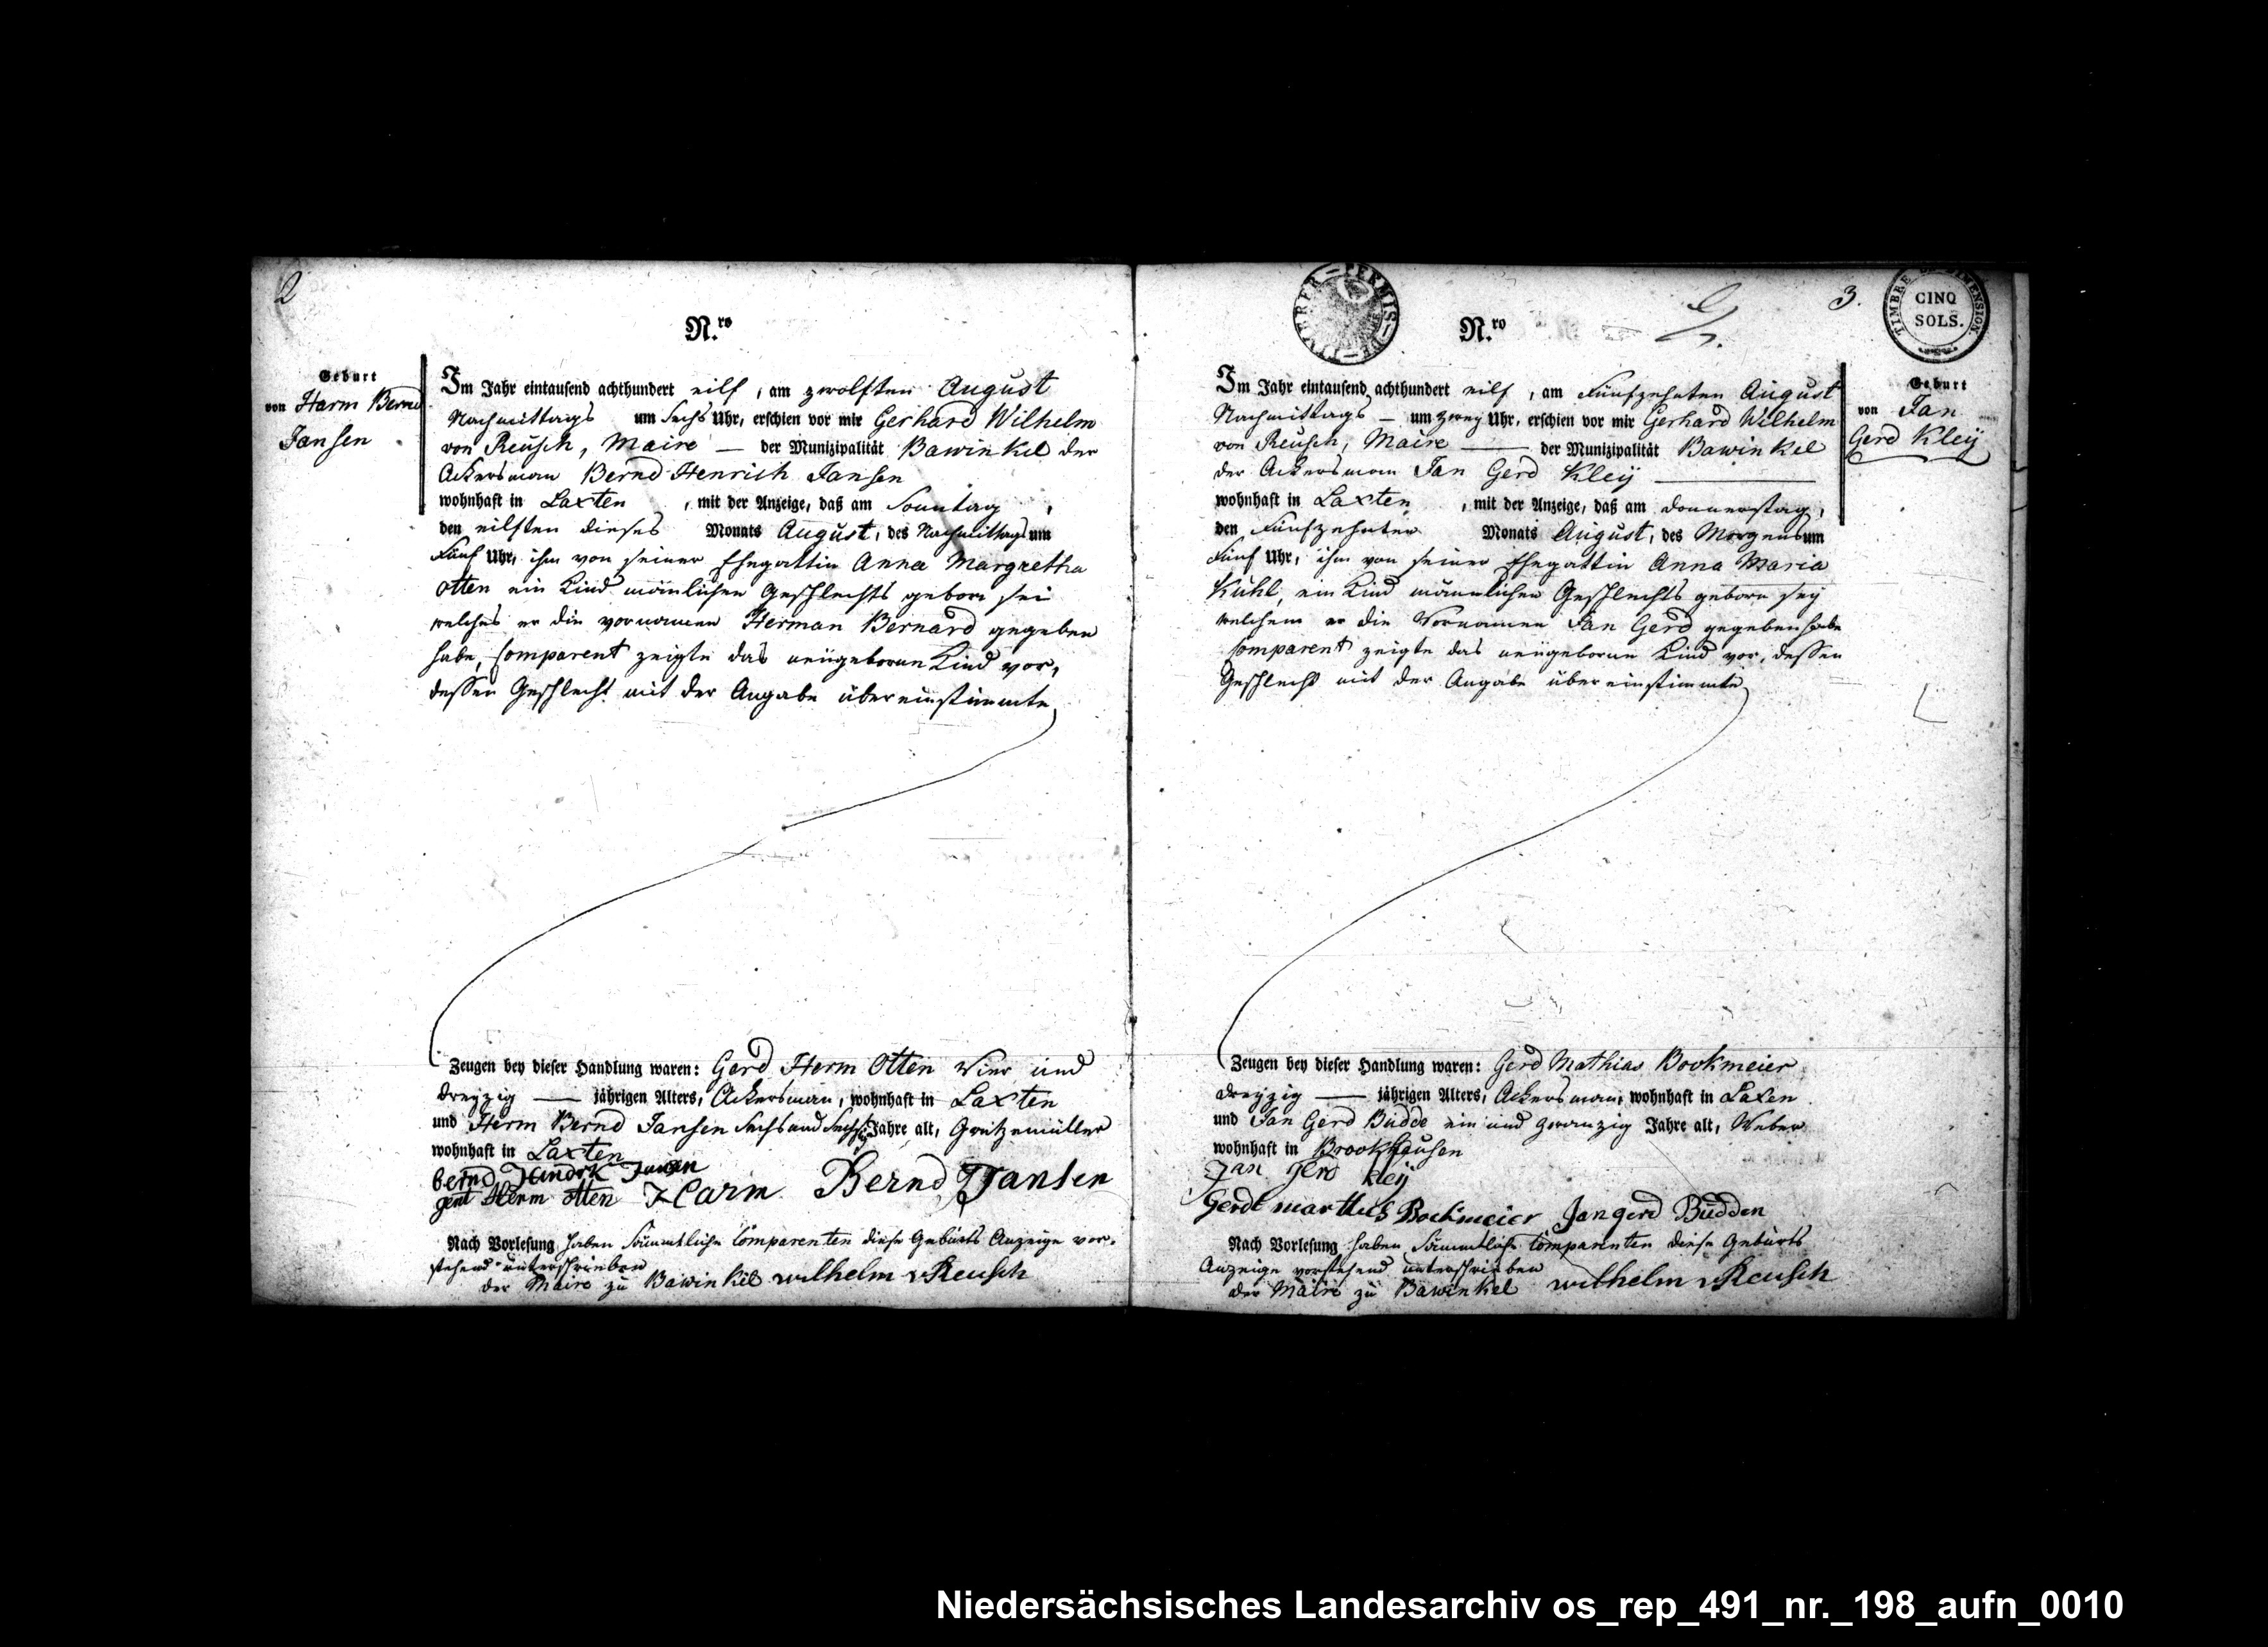 2
N.ro
Geburt
von Harm Bernd
Jansen
Im Jahr eintausend achthundert eilf, am zwolften August
Nachmittags um sechs Uhr, erschien vor mir Gerhard Wilhelm
von Reusch, Maire — der Munizipalität Bawinkel der
Ackersman Bernd Henrich Jansen
wohnhaft in Laxten, mit der Anzeige, daß am Sonntag,
den eilften dieses Monats August, des Nachmittags um
fünf Uhr, ihm von seiner Ehegattin Anna Margretha
Otten ein Kind mänlichen Geschlechts geborn sei
welches er die vornamen Herman Bernard gegeben
habe, Comparent zeigte das neügeborne Kind vor,
dessen Geschlecht mit der Angabe übereinstimmte
Zeugen bey dieser Handlung waren: Gerd Herm Otten Vier und
dreyzig — jährigen Alters, Ackersman, wohnhaft in Laxten
und Herm Bernd Jansen sechs und Jahre alt, Grützemüller
wohnhaft in Laxten
bernd Hindrk Jansen
gert Herm otten Harm Bernd Jansen
Nach Vorlesung haben sämmtliche Comparenten diese Geburts Anzeige vor-
stehend unterschrieben
der Maire zu Bawinkel wilhelm v Reusch
PERMIS DE TIMBRER
N.ro
3.
TIMBRE DE DIMENSION.
CINQ
SOLS.
Geburt
von Jan
Gerd Kleÿ
Im Jahr eintausend achthundert eilf, am fünfzehnten August
Nachmittags — um zwey Uhr, erschien vor mir Gerhard Wilhelm
von Reusch, Maire — der Munizipalität Bawinkel
der Ackersman Jan Gerd Kleÿ —
wohnhaft in Laxten, mit der Anzeige, daß am donnerstag,
den fünfzehnten Monats August, des Morgens um
fünf Uhr, ihm von seiner Ehegattin Anna Maria
Kühl, ein Kind männlichen Geschlechts geborn sey
welchem er die Vornamen Jan Gerd gegeben habe
Comparent zeigte das neügeborne Kind vor, dessen
Geschlecht mit der Angabe übereinstimmte
Zeugen bey dieser Handlung waren: Gerd Mathias Bookmeier
dreyzig — jährigen Alters, Ackersman, wohnhaft in Laxen
und Jan Gerd Büdde ein und zwanzig Jahre alt, Weber
wohnhaft in Brookhausen
Jan gerd kleÿ
Gerdt Bockmeier Jan gerd Büdden
Nach Vorlesung haben sämmtliche Comparenten diese Geburts
Anzeige vorstehend unterschrieben
der Maire zu Bawinkel wilhelm v Reusch
Niedersächsisches Landesarchiv os_rep_491_nr._198_aufn_0010